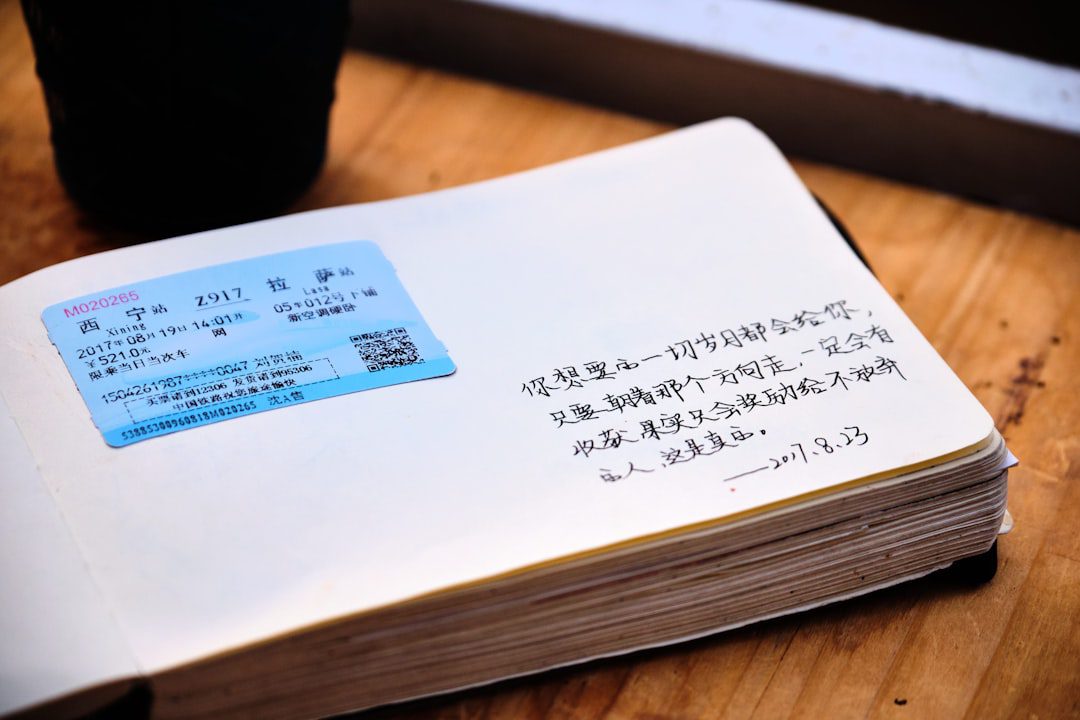 M020265
西宁站 Z917 拉萨站
Xining Lasa
2017年08月19日 14:01开 05车012号下铺
¥521.0元 网 新空调硬卧
限乘当日当次车
1504261987****0047
买票请到12306 发货请到95306
中国铁路祝您旅途愉快
53885300960818M020265 沈A售
你想要的一切岁月都会给你,
只要朝着那个方向走,一定会有
收获 果实只会奖励给不放弃
的人,这是真的。
——2017.8.23